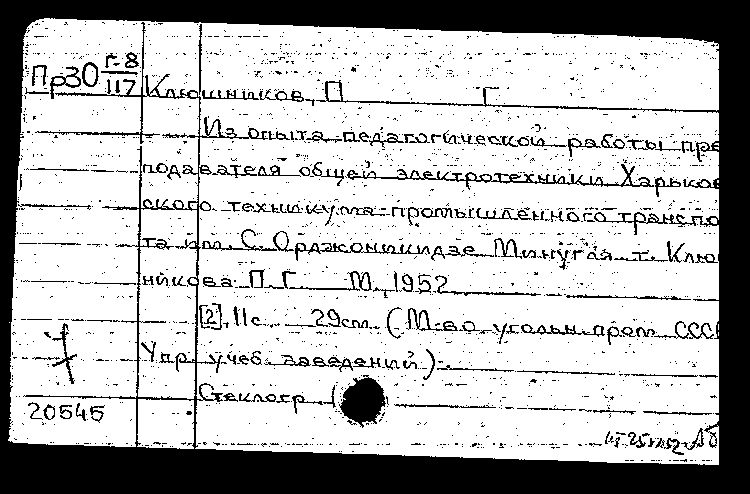 Пр30 Г-8/117 Клюшников, П Г
Из опыта педагогической работы пре
подавателя общей электротехники Харьков
ского техникума промышленного транспо
та им. С. Орджоникидзе Минугля т. Клю
никова П. Г. М., 1952
[2], 11 с. 29 см. (М-во угольн. пром СССР
Упр. учеб. заведений).
Стеклогр. (
20545